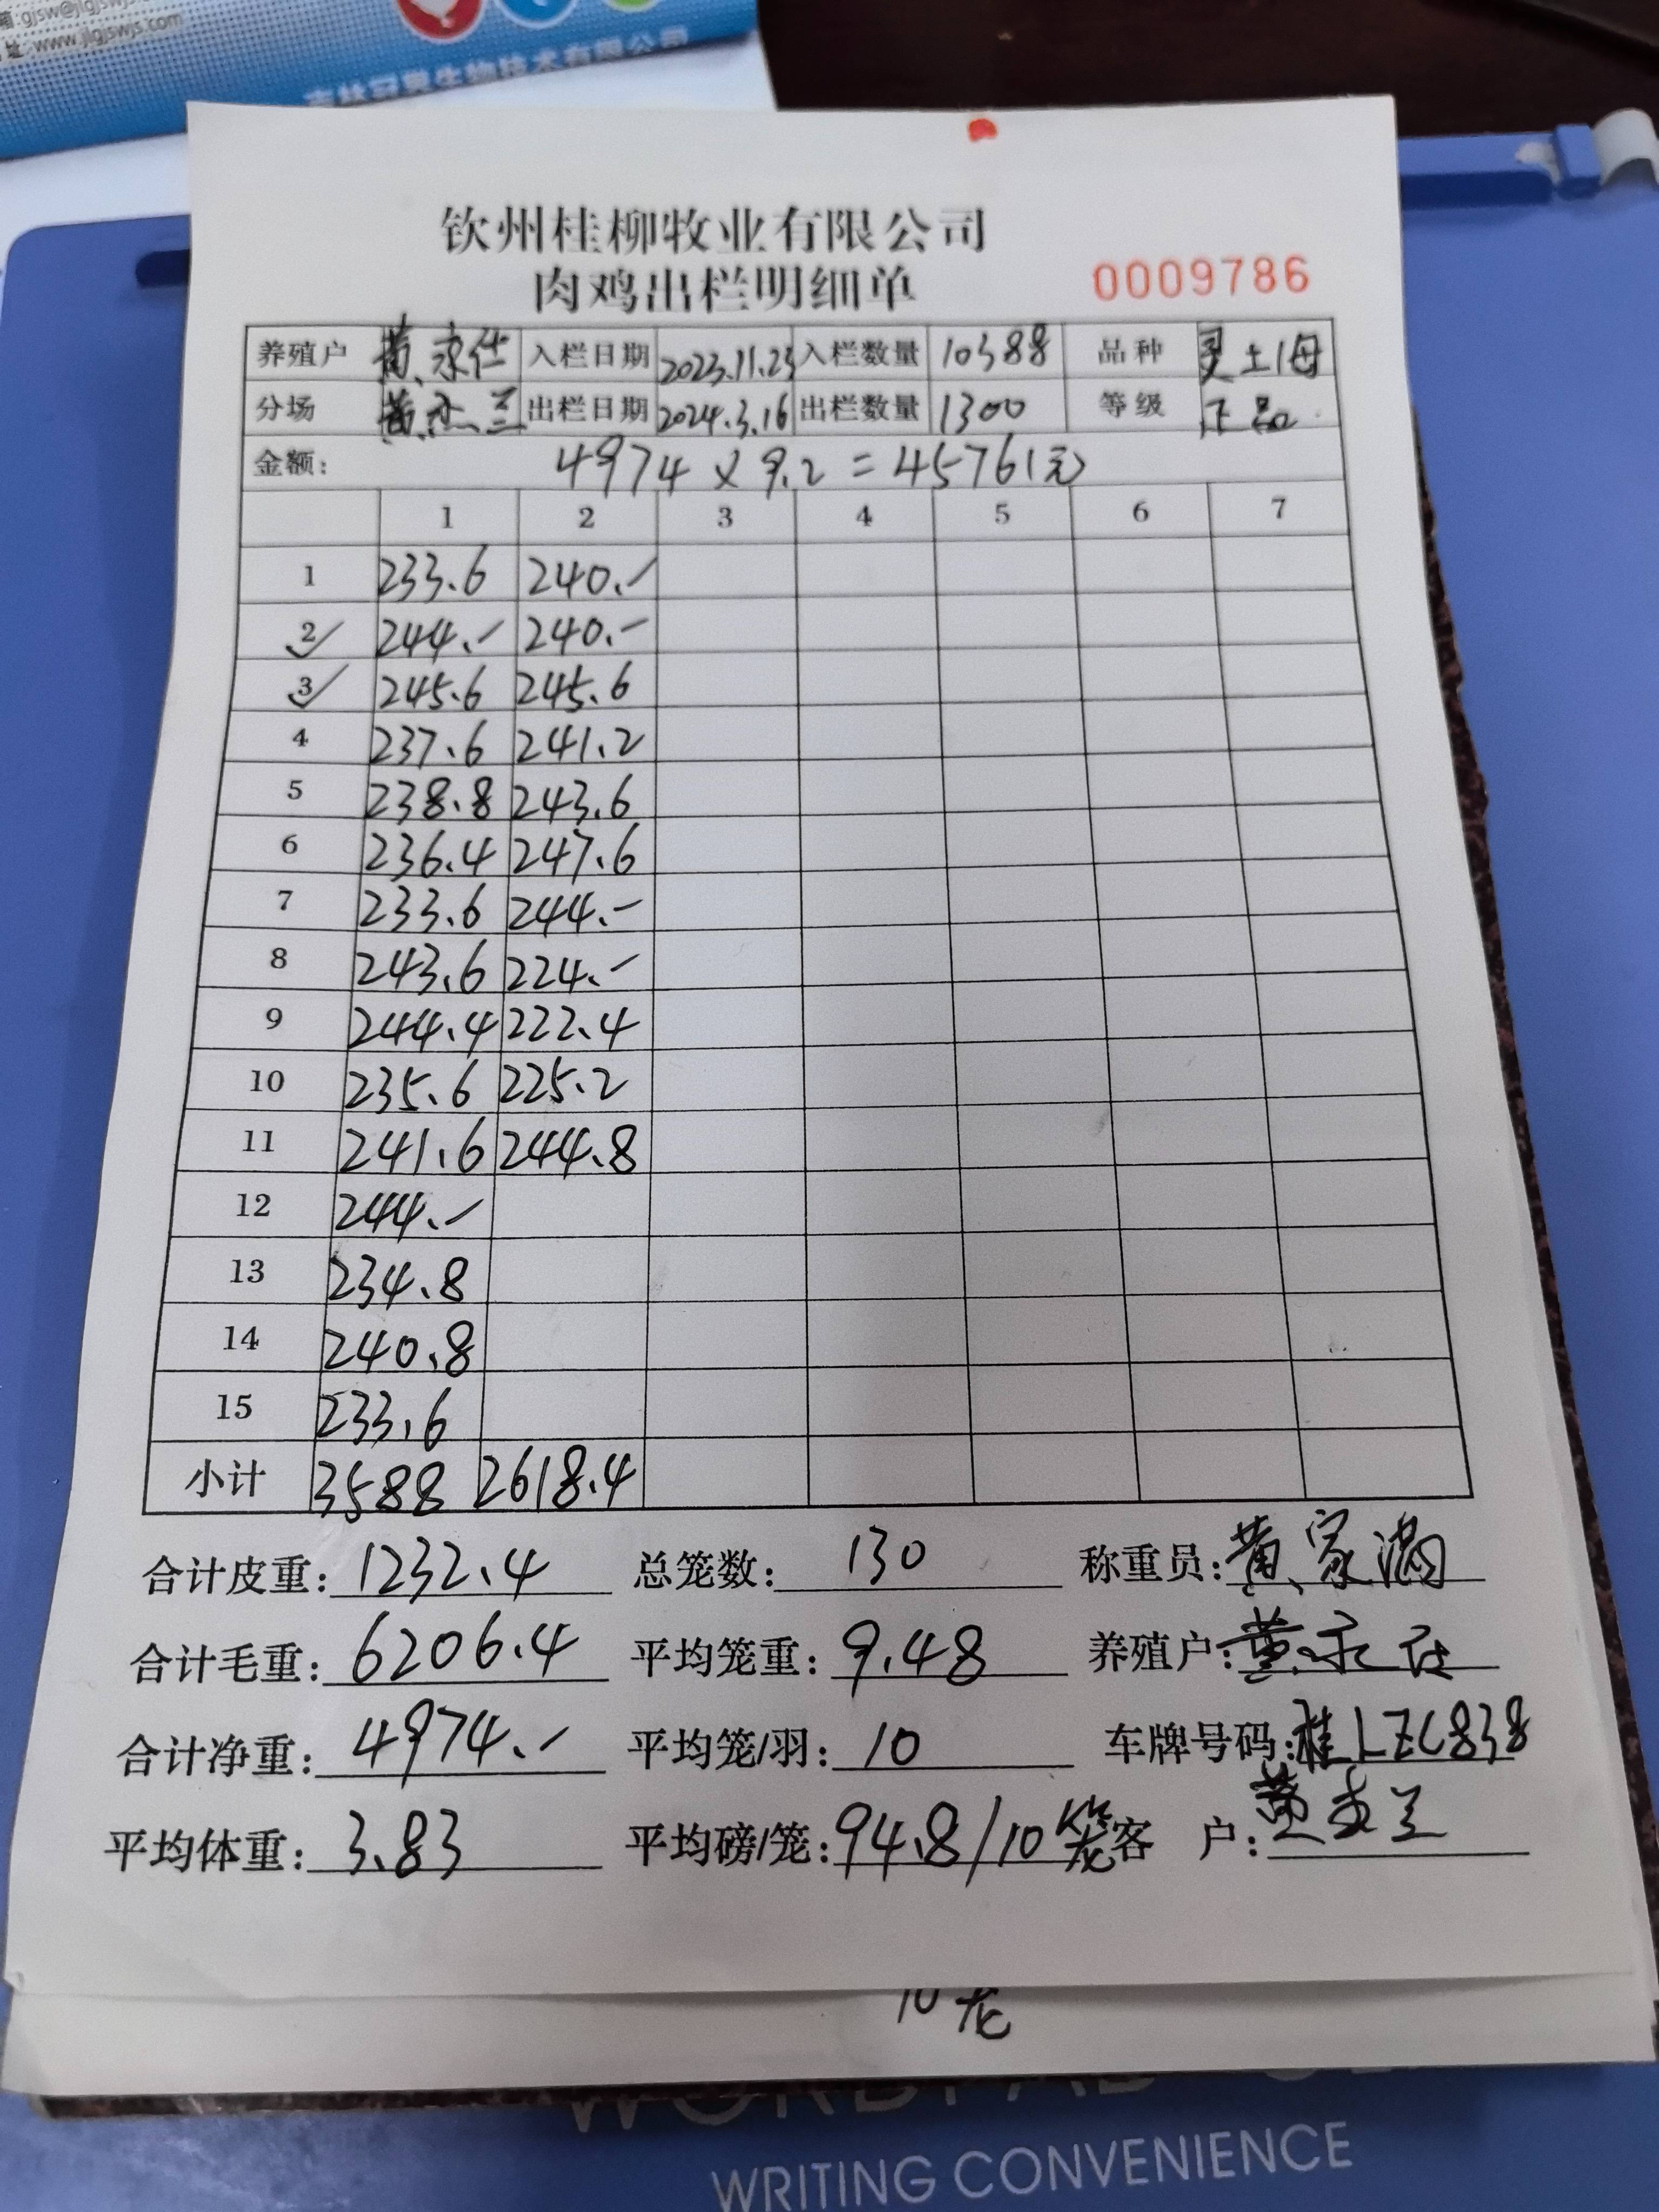 箱:gjsw@jlgjsw
址:www.jlgjswjs.com
钦州桂柳牧业有限公司
肉鸡出栏明细单
0009786
养殖户 黄永仕 入栏日期 2023.11.23 入栏数量 10388 品种 灵土1母
分场 出栏日期 2024.3.16 出栏数量 1300 等级 下品
金额: 4974 × 9.2 = 45761元
1 2 3 4 5 6 7
1 233.6 240.-
2 244.- 240.-
3 245.6 245.6
4 237.6 241.2
5 238.8 243.6
6 236.4 247.6
7 233.6 244.-
8 243.6 224.-
9 244.4 222.4
10 235.6 225.2
11 241.6 244.8
12 244.-
13 234.8
14 240.8
15 233.6
小计 3588 2618.4
合计皮重: 1232.4 总笼数: 130 称重员: 黄家满
合计毛重: 6206.4 平均笼重: 9.48 养殖户: 黄永仕
合计净重: 4974.- 平均笼/羽: 10 车牌号码: 桂LZC838
平均体重: 3.83 平均磅/笼: 94.8/10笼 客 户:
10笼
WRITING CONVENIENCE